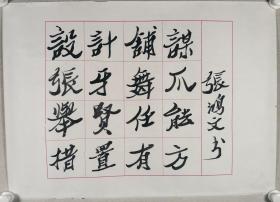 設計鋪謀
張牙舞爪
舉賢任能
措置有方
張鴻文书